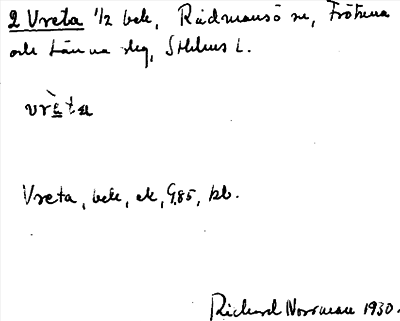 2 Vreta 1/2 bek, Rådmansö sn, Frötuna
och Länna skg, Sthlms L.
vrèta
Vreta, bek, ek, G.85, kb.
Rickard Norrman 1930.